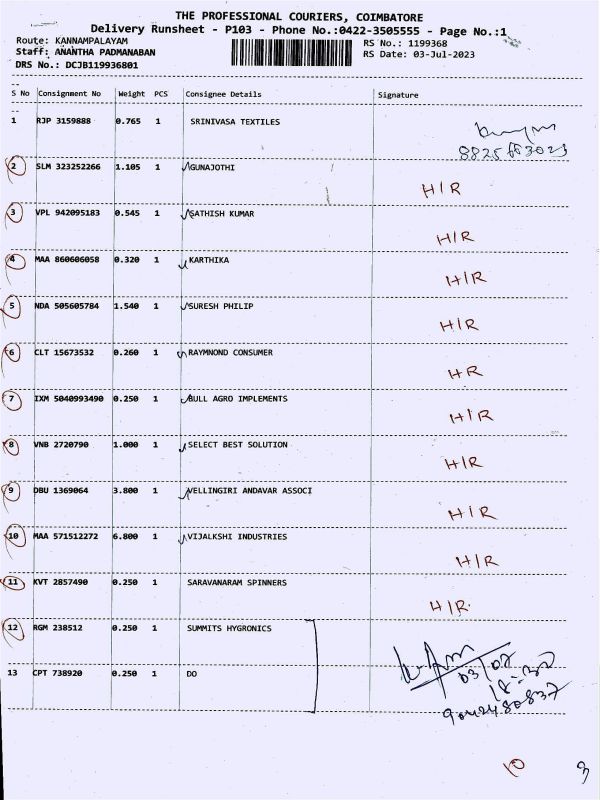 THE PROFESSIONAL COURIERS, COIMBATORE
Delivery Runsheet - P103 - Phone No.:0422-3505555 - Page No.:1
Route: KANNAMPALAYAM
RS No.: 1199368
Staff: ANANTHA PADMANABAN
RS Date: 03-Jul-2023
DRS No.: DCJB119936801
S No Consignment No Weight PCS Consignee Details Signature
1 RJP 3159888 0.765 1 SRINIVASA TEXTILES
2 SLM 323252266 1.105 1 GUNAJOTHI
H/R
3 VPL 942095183 0.545 1 SATHISH KUMAR
H/R
4 MAA 860606058 0.320 1 KARTHIKA
H/R
5 NDA 505605784 1.540 1 SURESH PHILIP
H/R
6 CLT 15673532 0.260 1 RAYMNOND CONSUMER
HR
7 IXM 5040993490 0.250 1 BULL AGRO IMPLEMENTS
H/R
8 VNB 2720790 1.000 1 SELECT BEST SOLUTION
H/R
9 DBU 1369064 3.800 1 VELLINGIRI ANDAVAR ASSOCI
H/R
10 MAA 571512272 6.800 1 VIJALKSHI INDUSTRIES
H/R
11 KVT 2857490 0.250 1 SARAVANARAM SPINNERS
H/R
12 RGM 238512 0.250 1 SUMMITS HYGRONICS
03/07
13 CPT 738920 0.250 1 DO
10 3